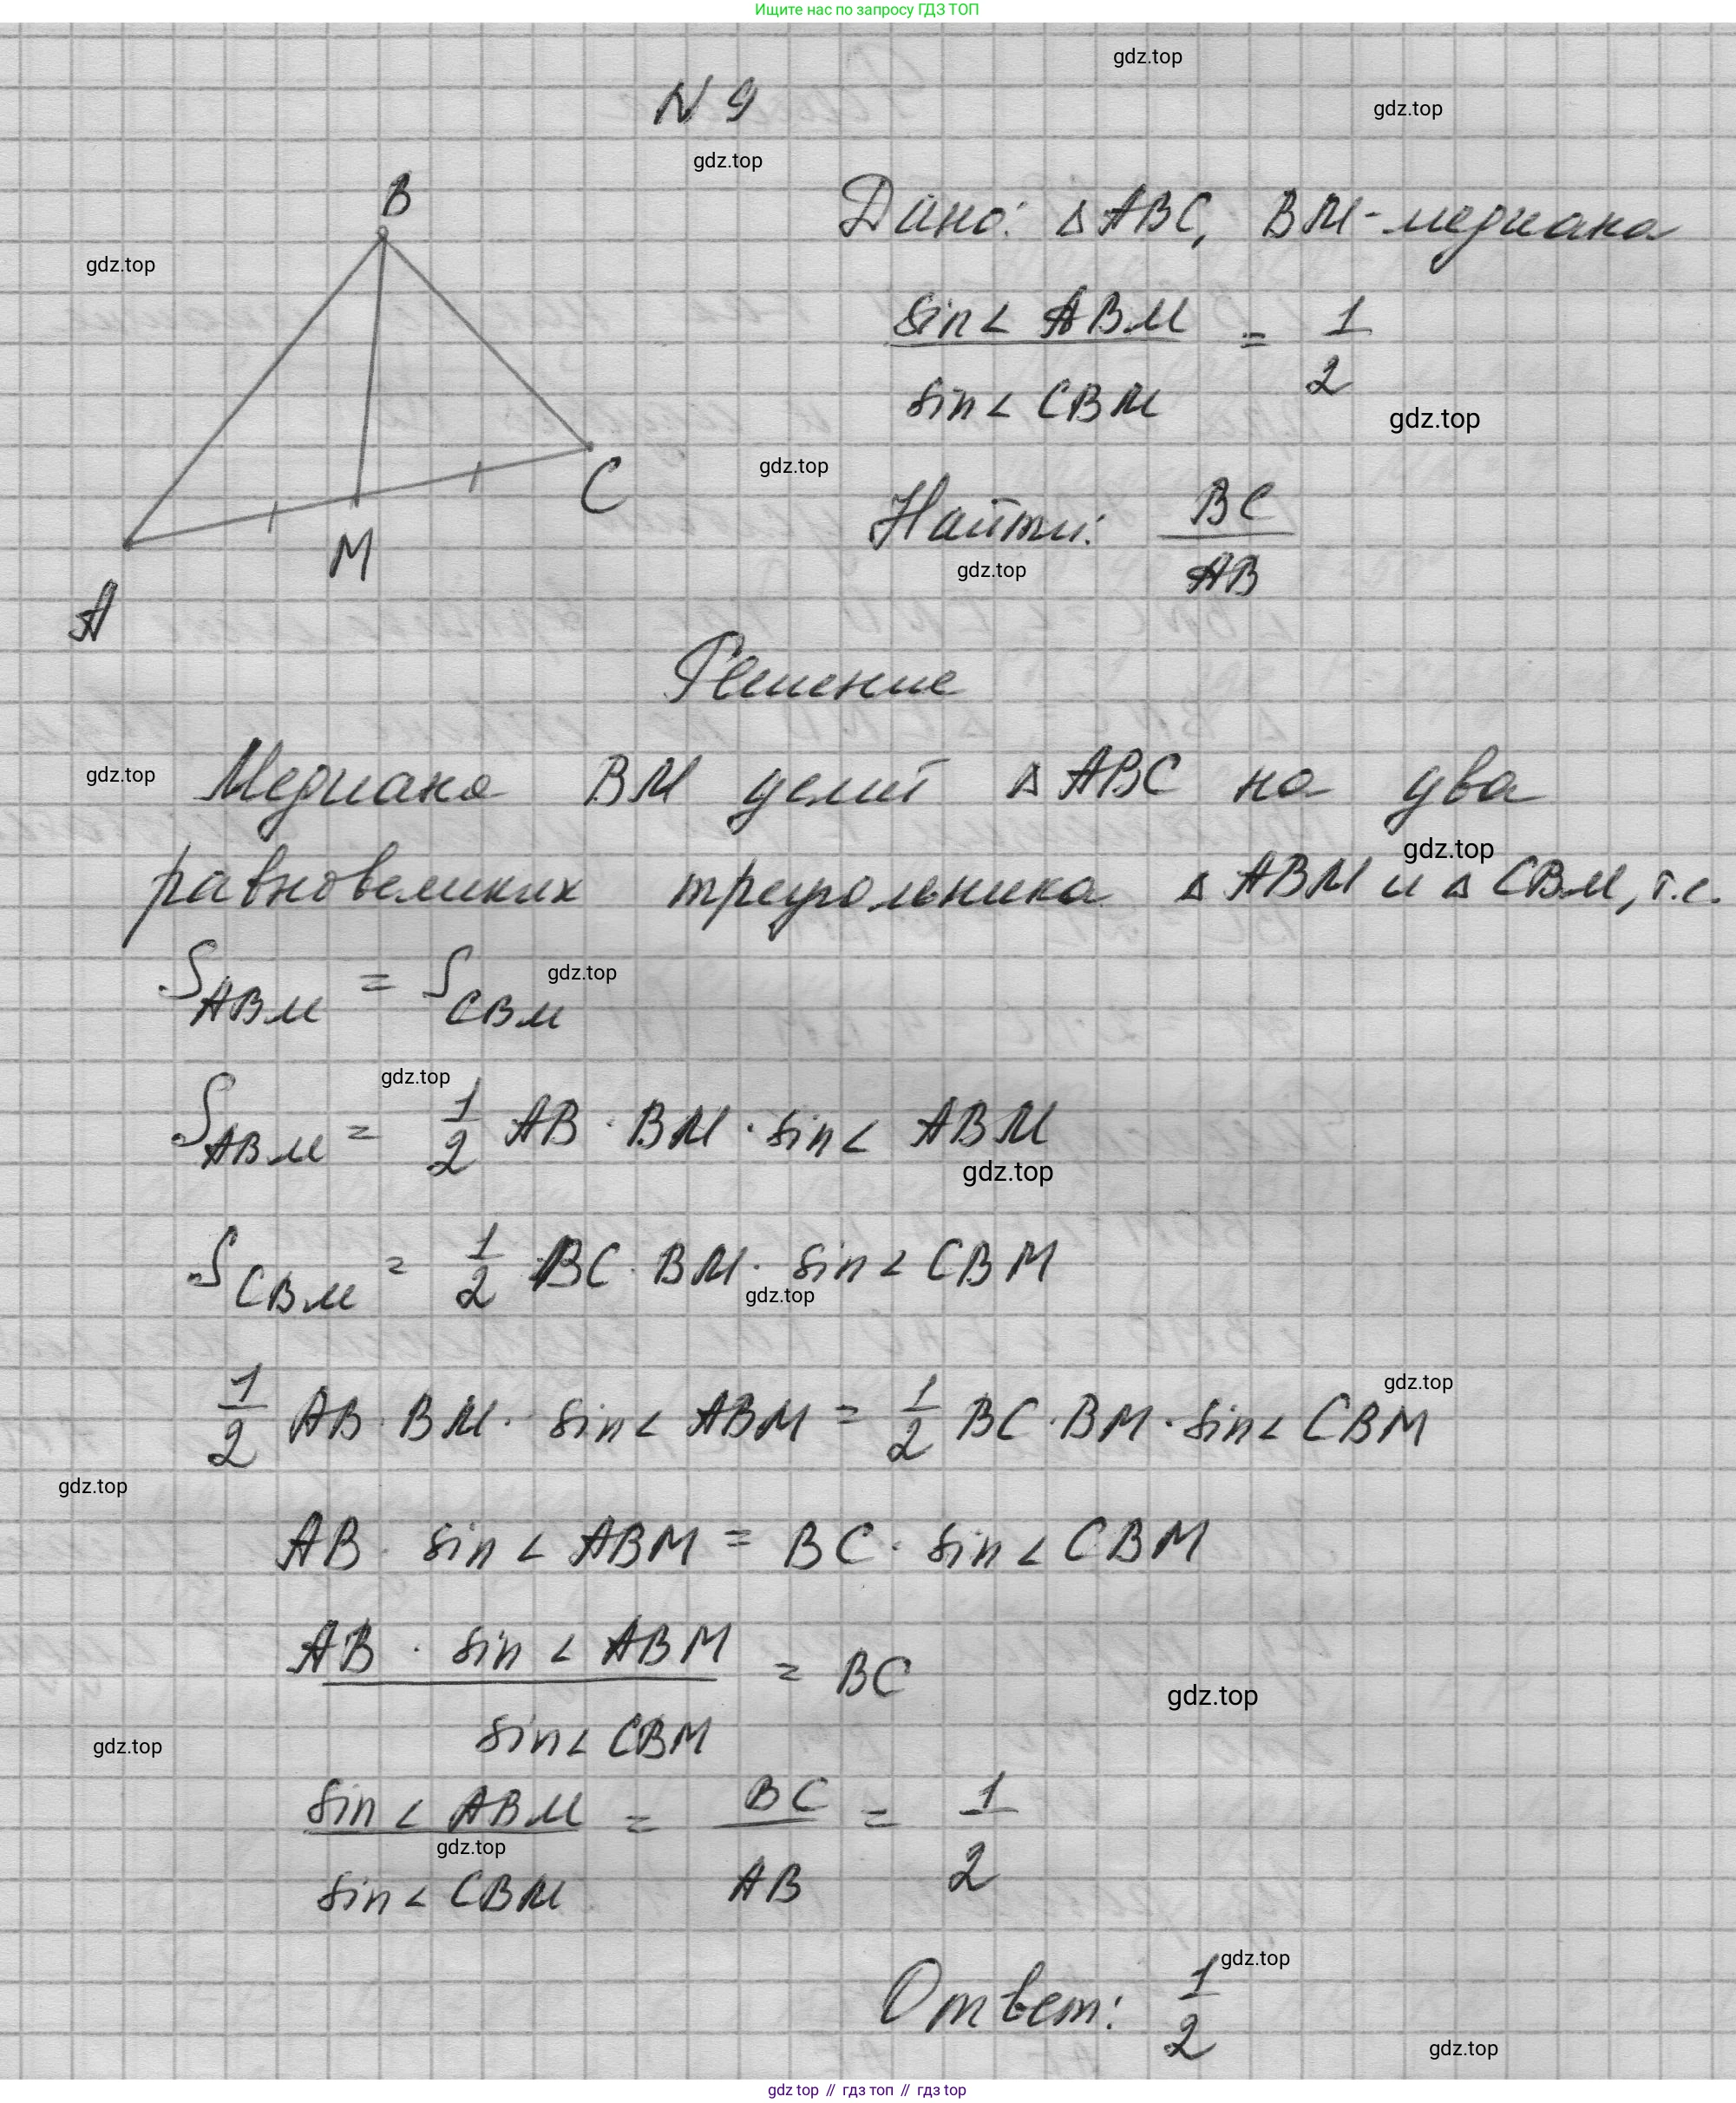 Ищите нас по запросу ГДЗ ТОП
gdz.top
N 9
gdz.top
gdz.top
B
Дано: △ABC, BM - медиана
gdz.top
sin∠ABM / sin∠CBM = 1/2
gdz.top
C
gdz.top
M
Найти: BC/AB
gdz.top
A
Решение
gdz.top
Медиана BM делит △ABC на два
gdz.top
равновеликих треугольника △ABM и △CBM, т.е.
S_ABM = S_CBM
gdz.top
gdz.top
S_ABM = 1/2 AB · BM · sin∠ABM
gdz.top
S_CBM = 1/2 BC · BM · sin∠CBM
gdz.top
gdz.top
1/2 AB · BM · sin∠ABM = 1/2 BC · BM · sin∠CBM
gdz.top
AB · sin∠ABM = BC · sin∠CBM
AB · sin∠ABM / sin∠CBM = BC
gdz.top
gdz.top
sin∠ABM / sin∠CBM = BC/AB = 1/2
gdz.top
gdz.top
Ответ: 1/2
gdz.top
gdz top // гдз топ // гдз top